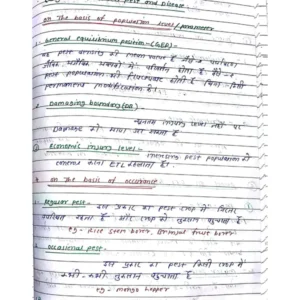 pest and Disease
on the basis of population level / parameter
1. General equilibrium position - (GEP) -
pest density की mean value है जिसके
pest population की fluctuate होती है बिना किसी
permanent modification के।
2 Damaging boundary (DB)
injury level जहाँ पर
Damage को मापा जा सकता है
③ economic injury level -
increasing pest population को
control करना ETL कहलाता है।
* on the basis of occurance
1 Regular pest -
इस प्रकार का pest crop में
रहता है और crop को नुकसान पहुंचाता है
eg - Rice stem borer, Brinjal fruit borer
2. occasional pest -
इस प्रकार का pest किसी crop में
कभी-कभी नुकसान पहुंचाता है
eg - mango hopper